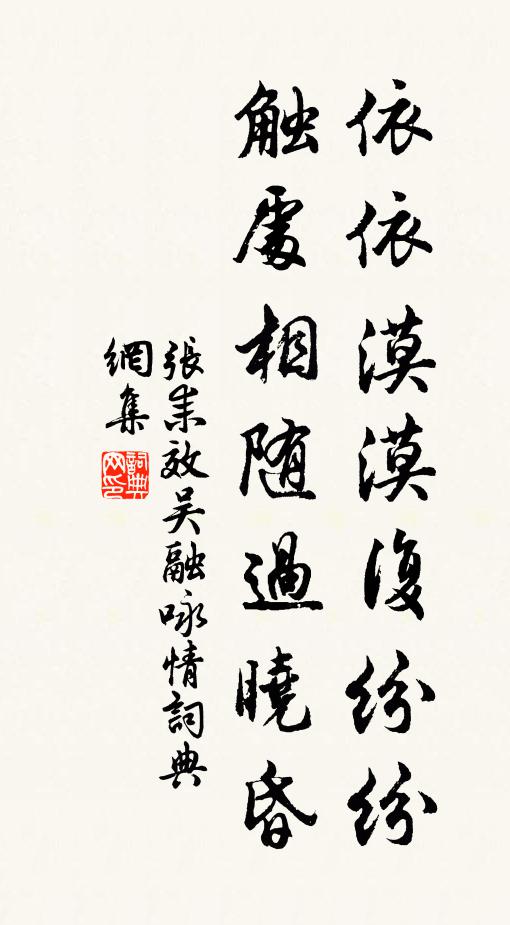 依依漠漠復紛紛
触處相随過曉昏
張耒效吴融咏情詞典
網集
詞典网印